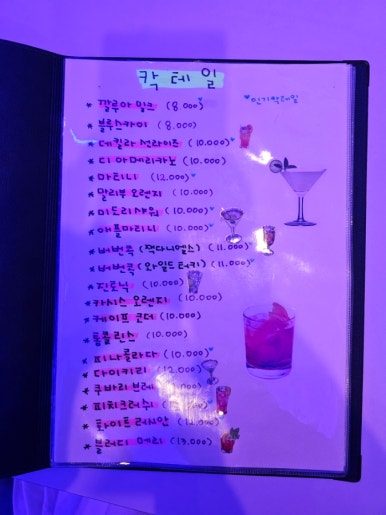 칵테일
♥인기칵테일
* 깔루아 밀크 (8.000)♥
* 블루스카이 (8.000)
* 데킬라 선라이즈 (10.000)♥
* 디 아메리카노 (10.000)
* 마티니 (12.000)♥
* 말리부 오렌지 (10.000)
* 미도리샤워 (10.000)♥
* 애플마티니 (10.000)
* 버번콕 (잭다니엘스) (11.000)♥
* 버번콕 (와일드터키) (11.000)♥
* 진토닉 (10.000)
* 카시스 오렌지 (10.000)
* 케이프 코더 (10.000)
* 톰콜린스 (10.000)
* 피나콜라다 (10.000)♥
* 다이키리 (12.000)
* 쿠바리브레
* 피치크러쉬
* 화이트러시안 (12.000)
* 블러디 메리 (13.000)